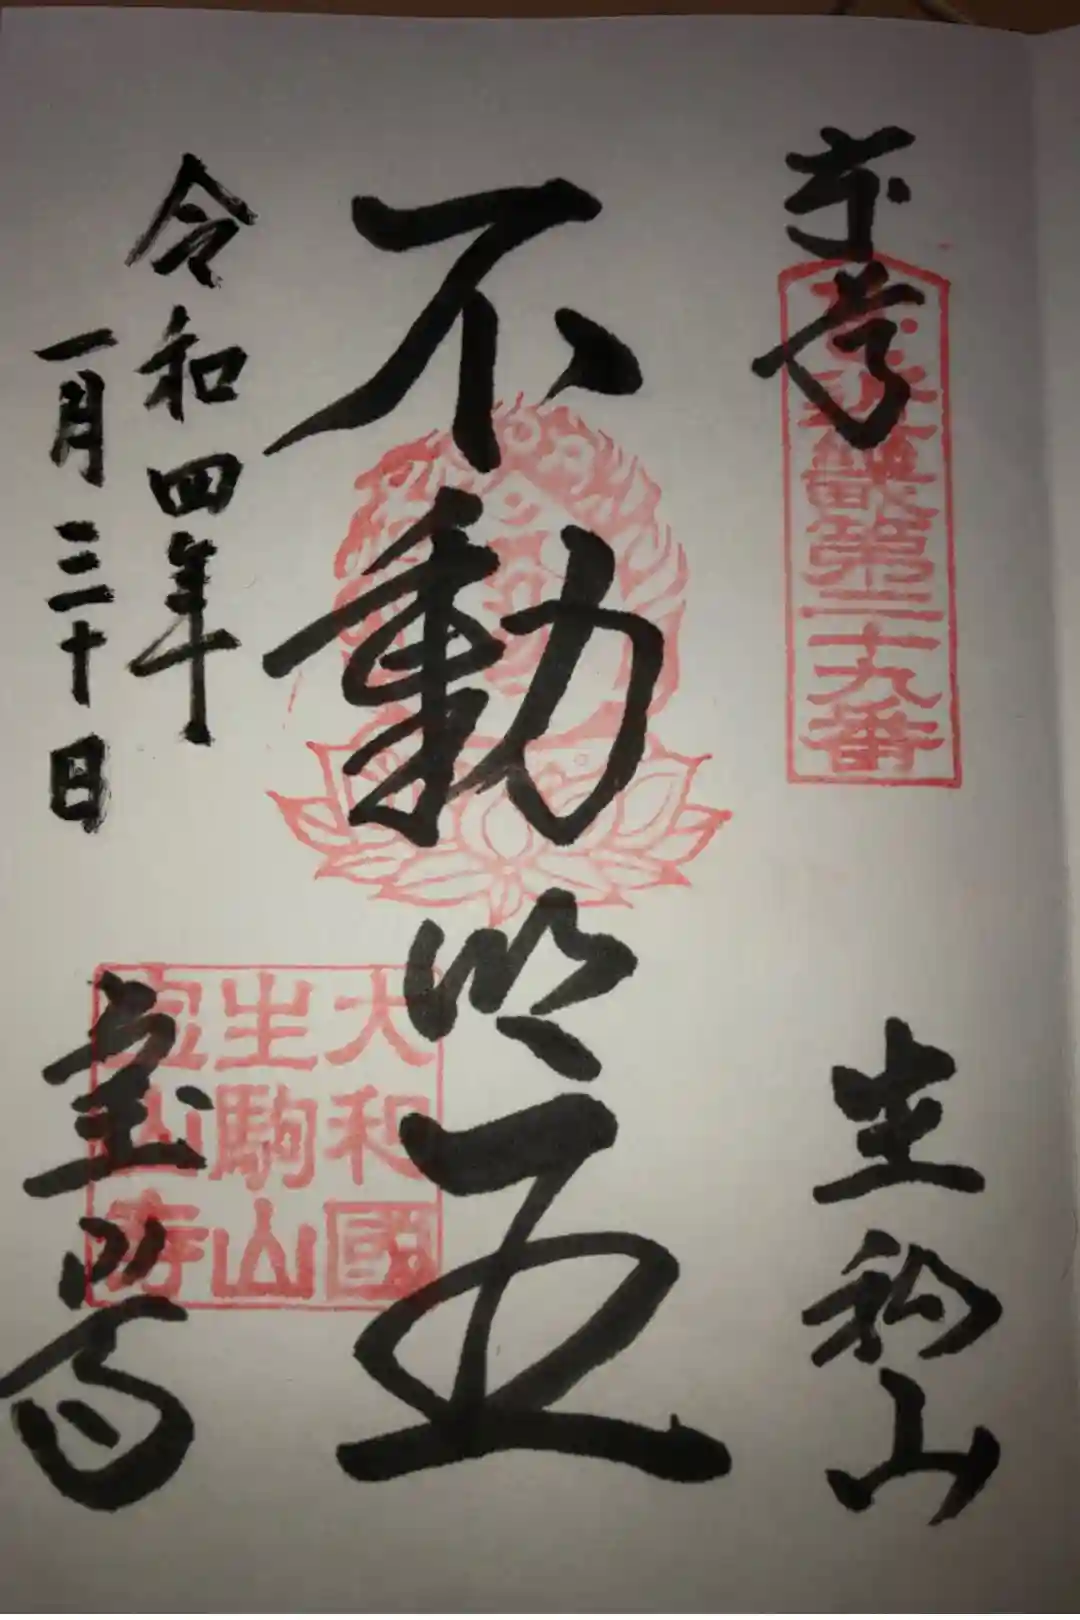 奉拝
生駒山
不動明王
令和四年
一月三十日
宝山寺
第二十九番
大和國
生駒山
寳山寺